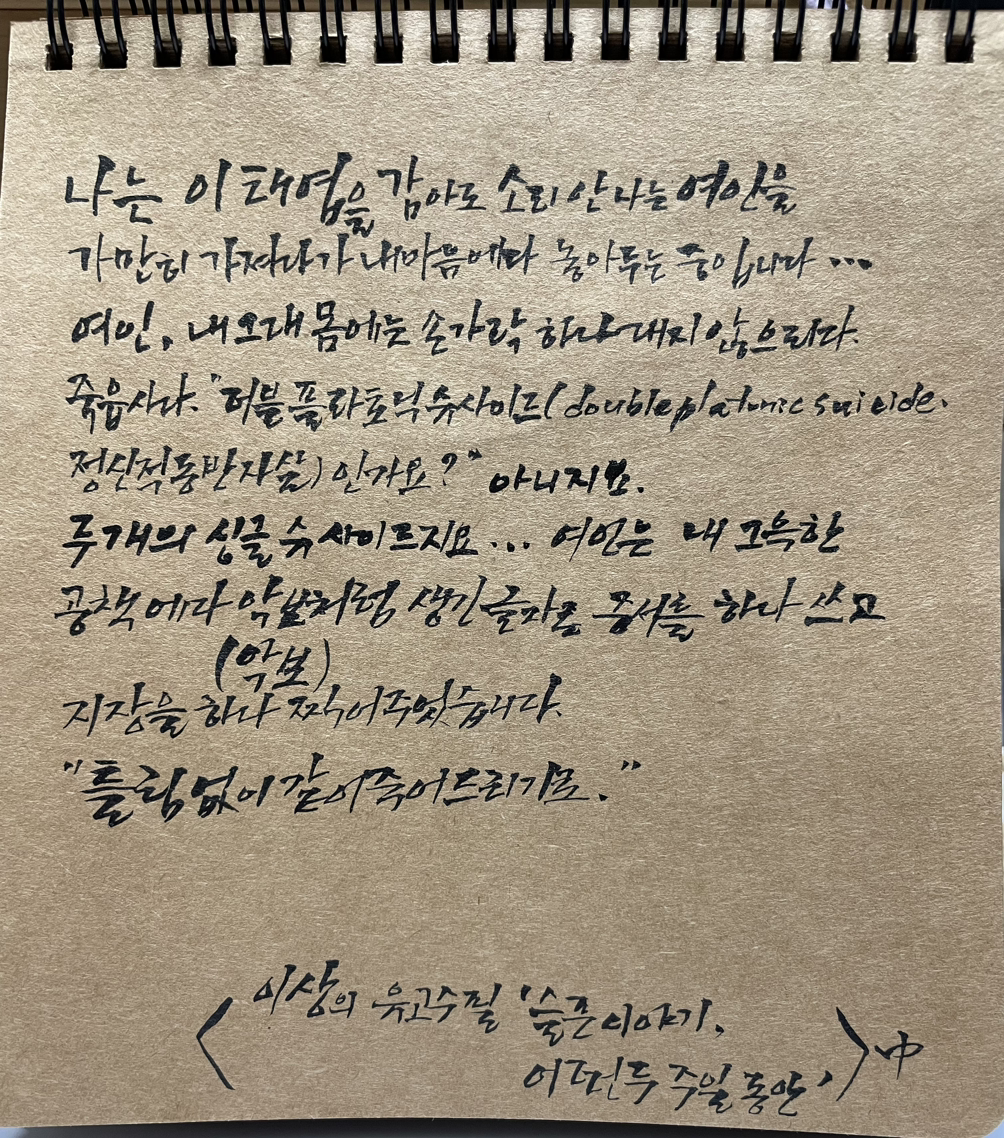 나는 이 태엽을 감아도 소리 안 나는 여인을
가만히 가져다가 내 마음에다 놓아두는 중입니다...
여인, 내 그대 몸에는 손가락 하나 대지 않으리다.
죽읍시다. "더블 플라토닉 슈사이드(double platonic suicide.
정신적 동반자살)인가요?" 아니지요.
두 개의 싱글 슈사이드지요... 여인은 내 그윽한
공책에다 악보처럼 생긴 글자로 증서를 하나 쓰고
(악보)
지장을 하나 찍어주었습니다.
"틀림없이 같이 죽어드리기로."
〈이상의 유고수필 '슬픈이야기,
어떤 두 주일 동안'〉中